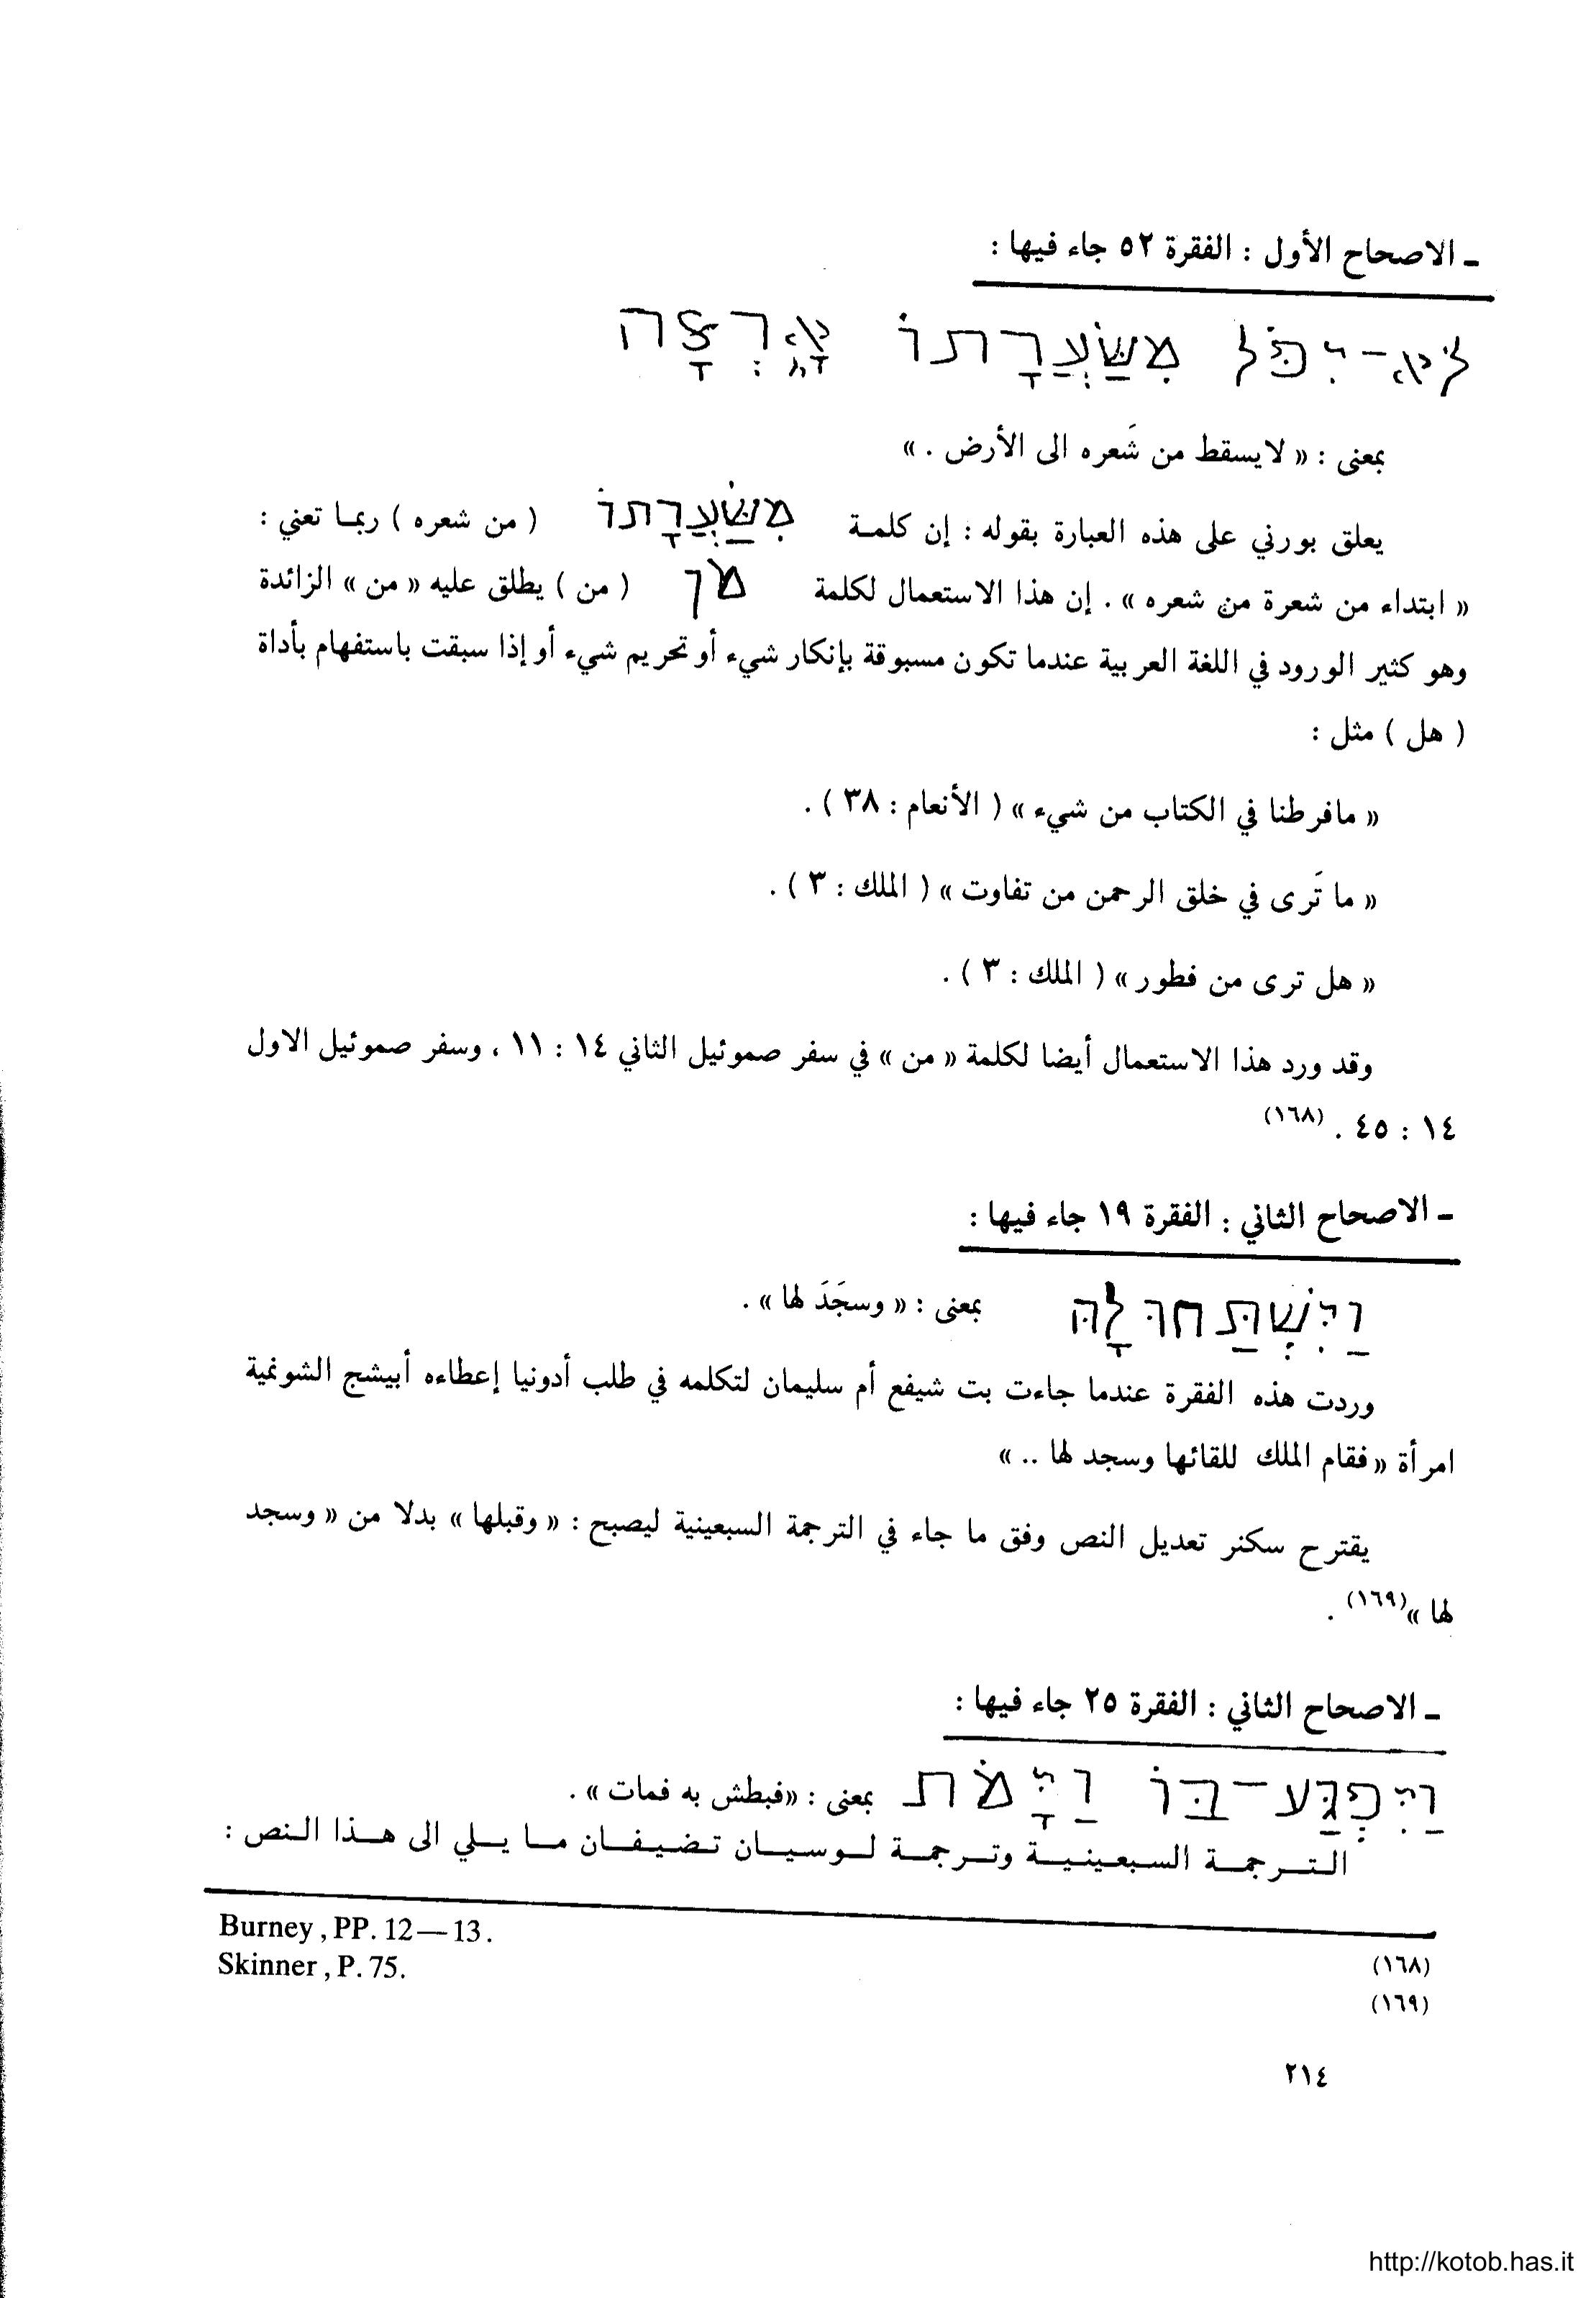 ـ الاصحاح الأول : الفقرة ٥٢ جاء فيها :
לֹא־יִפֹּל מִשַּׂעֲרָתוֹ אָרְצָה
بمعنى : « لا يسقط من شَعره الى الأرض . »
يعلق بورني على هذه العبارة بقوله : إن كلمة מִשַּׂעֲרָתוֹ ( من شعره ) ربما تعني :
« ابتداء من شعرة من شعره » . إن هذا الاستعمال لكلمة מן ( من ) يطلق عليه « من » الزائدة
وهو كثير الورود في اللغة العربية عندما تكون مسبوقة بإنكار شيء أو تحريم شيء أو إذا سبقت باستفهام بأداة
( هل ) مثل :
« مافرطنا في الكتاب من شيء » ( الأنعام : ٣٨ ) .
« ما تَرى في خلق الرحمن من تفاوت » ( الملك : ٣ ) .
« هل ترى من فطور » ( الملك : ٣ ) .
وقد ورد هذا الاستعمال أيضا لكلمة « من » في سفر صموئيل الثاني ١٤ : ١١ ، وسفر صموئيل الاول
١٤ : ٤٥ . (١٦٨)
ـ الاصحاح الثاني : الفقرة ١٩ جاء فيها :
וַיִּשְׁתַּחוּ לָהּ بمعنى : « وسجَدَ لها » .
وردت هذه الفقرة عندما جاءت بت شيفع أم سليمان لتكلمه في طلب أدونيا إعطاءه أبيشج الشونمية
امرأة « فقام الملك للقائها وسجد لها .. »
يقترح سكنر تعديل النص وفق ما جاء في الترجمة السبعينية ليصبح : « وقبلها » بدلا من « وسجد
لها »(١٦٩) .
ـ الاصحاح الثاني : الفقرة ٢٥ جاء فيها :
וַיִּפְגַּע־בּוֹ וַיָּמֹת بمعنى : «فبطش به فمات» .
الترجمة السبعينية وترجمة لوسيان تضيفان ما يلي الى هذا النص :
Burney , PP. 12—13.
(١٦٨)
Skinner , P. 75.
(١٦٩)
٢١٤
http://kotob.has.it